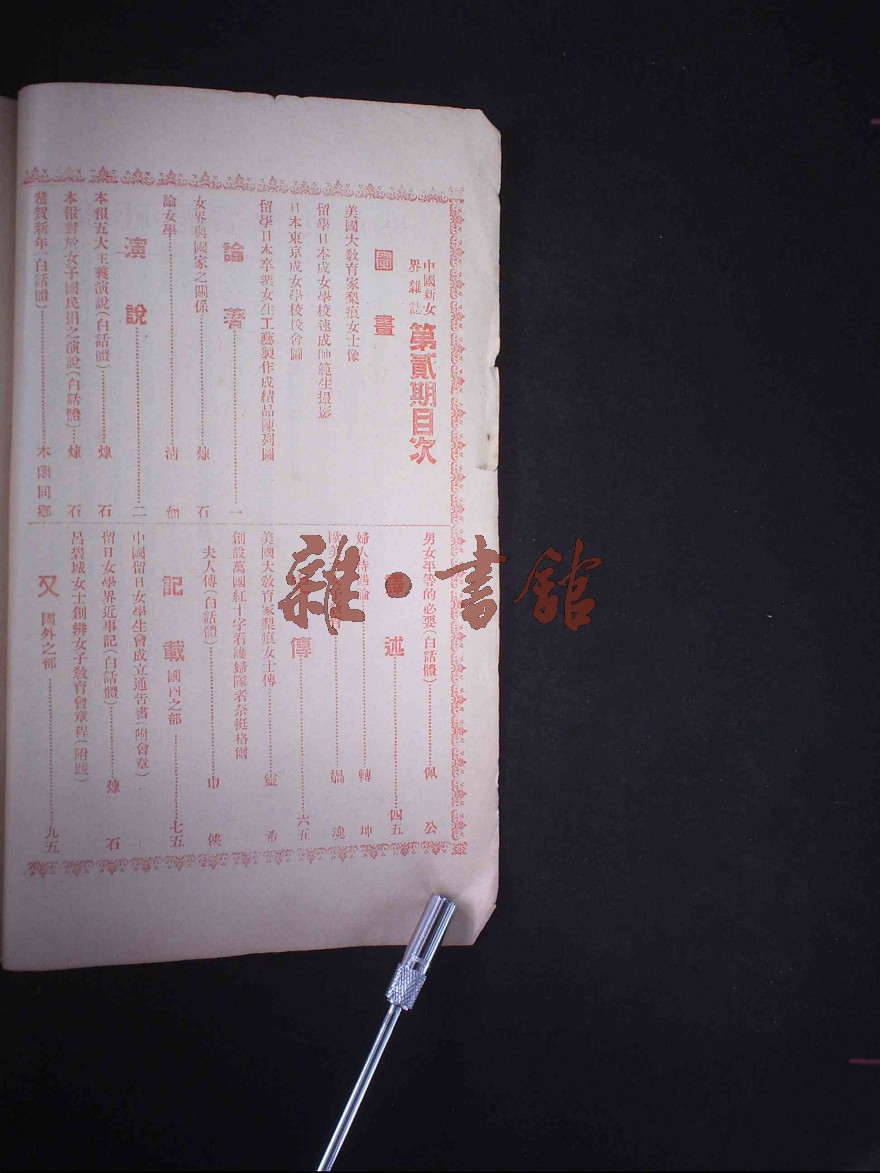 中國新女界雜誌 第貳期目次
圖畫
美國大敎育家梨痕女士像
留學日本成女學校速成師範生撮影
日本東京成女學校校舍圖
留學日本卒業女生工藝製作成績品陳列圖
論著 一
女界與國家之關係 煉石
論女學 清如
演說 二
本報五大主義演說(白話體) 煉石
本報對於女子國民捐之演說(白話體) 煉石
恭賀新年(白話體) 木蘭同鄉
男女平等的必要(白話體) 佩公
述 四五
婦人待遇論 轉坤
歐美 媧魂
傳 六五
美國大敎育家梨痕女士傳 靈希
創設萬國紅十字看護婦隊者奈挺格爾
夫人傳(白話體) 巾俠
記載 國內之部 七五
中國留日女學生會成立通告書(附會章)
留日女學界近事記(白話體) 煉石
呂碧城女士創辦女子敎育會章程(附跋)
又 國外之部 九五
雜·書館